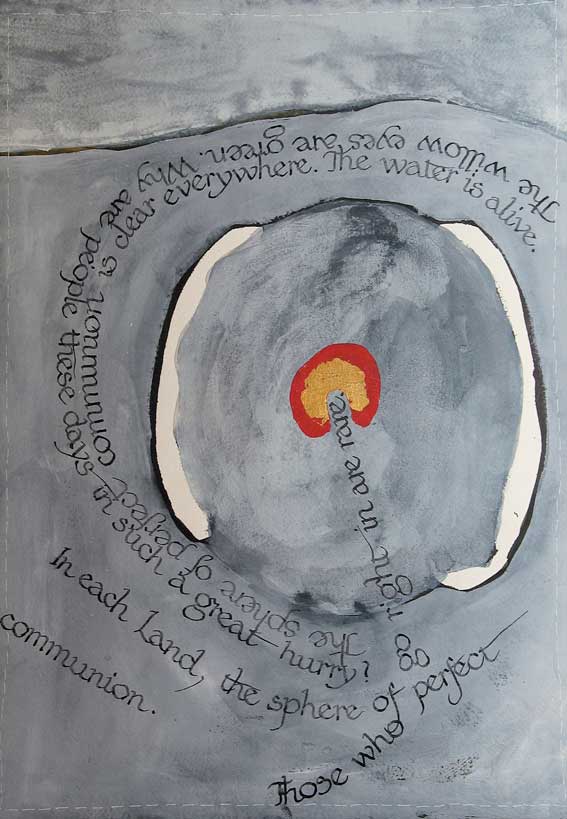 The willow eyes are green. Why are people these days in such a great hurry?
The sphere of perfect communion is clear everywhere. The water is alive.
In each Land, the sphere of perfect
communion.
Those who go right in are rare.